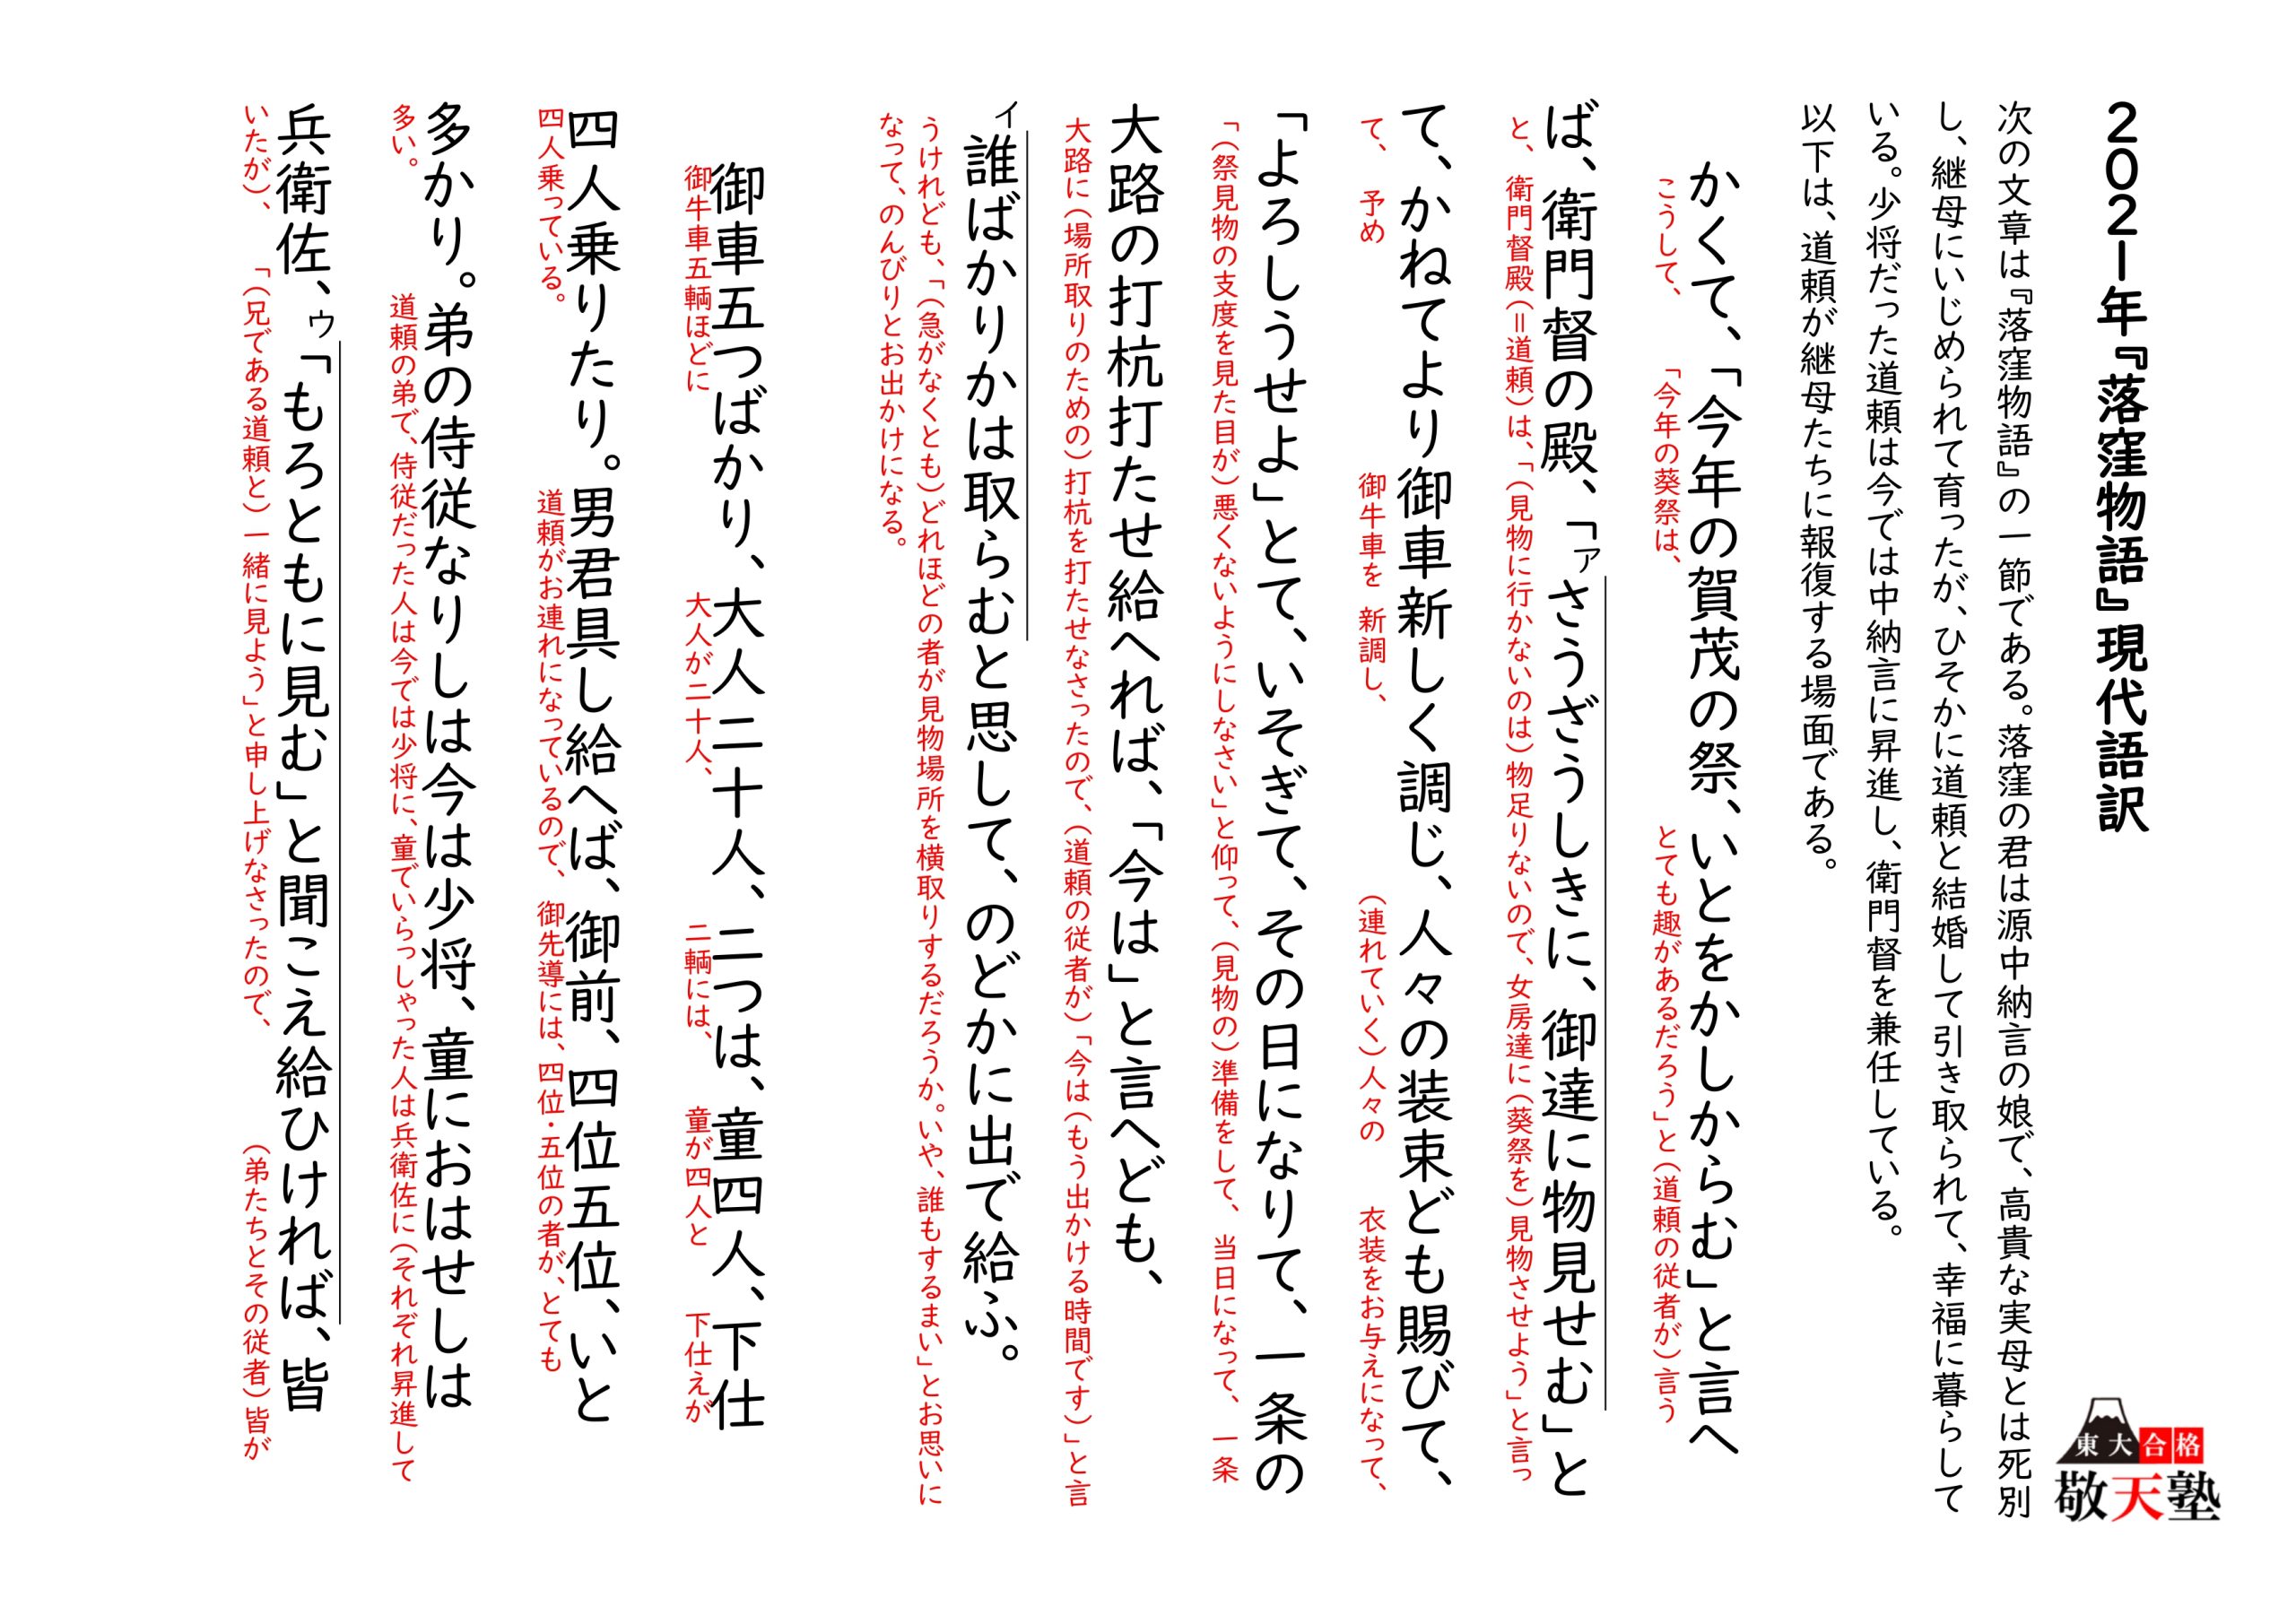 2021年『落窪物語』現代語訳
次の文章は『落窪物語』の一節である。落窪の君は源中納言の娘で、高貴な実母とは死別
し、継母にいじめられて育ったが、ひそかに道頼と結婚して引き取られて、幸福に暮らして
いる。少将だった道頼は今では中納言に昇進し、衛門督を兼任している。
以下は、道頼が継母たちに報復する場面である。
かくて、「今年の賀茂の祭、いとをかしからむ」と言へ
こうして、「今年の葵祭は、とても趣があるだろう」と(道頼の従者が)言う
ば、衛門督の殿、「ァさうざうしきに、御達に物見せむ」と
と、衛門督殿(=道頼)は、「(見物に行かないのは)物足りないので、女房達に(葵祭を)見物させよう」と言っ
て、かねてより御車新しく調じ、人々の装束ども賜びて、
て、予め 御牛車を 新調し、(連れていく)人々の 衣装をお与えになって、
「よろしうせよ」とて、いそぎて、その日になりて、一条の
「(祭見物の支度を見た目が)悪くないようにしなさい」と仰って、(見物の)準備をして、当日になって、一条
大路の打杭打たせ給へれば、「今は」と言へども、
大路に(場所取りのための)打杭を打たせなさったので、(道頼の従者が)「今は(もう出かける時間です)」と言
ィ誰ばかりかは取らむと思して、のどかに出で給ふ。
うけれども、「(急がなくとも)どれほどの者が見物場所を横取りするだろうか。いや、誰もするまい」とお思いに
なって、のんびりとお出かけになる。
御車五つばかり、大人二十人、二つは、童四人、下仕
御牛車五輌ほどに 大人が二十人、二輌には、童が四人と 下仕えが
四人乗りたり。男君具し給へば、御前、四位五位、いと
四人乗っている。道頼がお連れになっているので、御先導には、四位・五位の者が、とても
多かり。弟の侍従なりしは今は少将、童におはせしは
多い。道頼の弟で、侍従だった人は今では少将に、童でいらっしゃった人は兵衛佐に(それぞれ昇進して
兵衛佐、ゥ「もろともに見む」と聞こえ給ひければ、皆
いたが)、「(兄である道頼と)一緒に見よう」と申し上げなさったので、(弟たちとその従者)皆が
東大合格
敬天塾